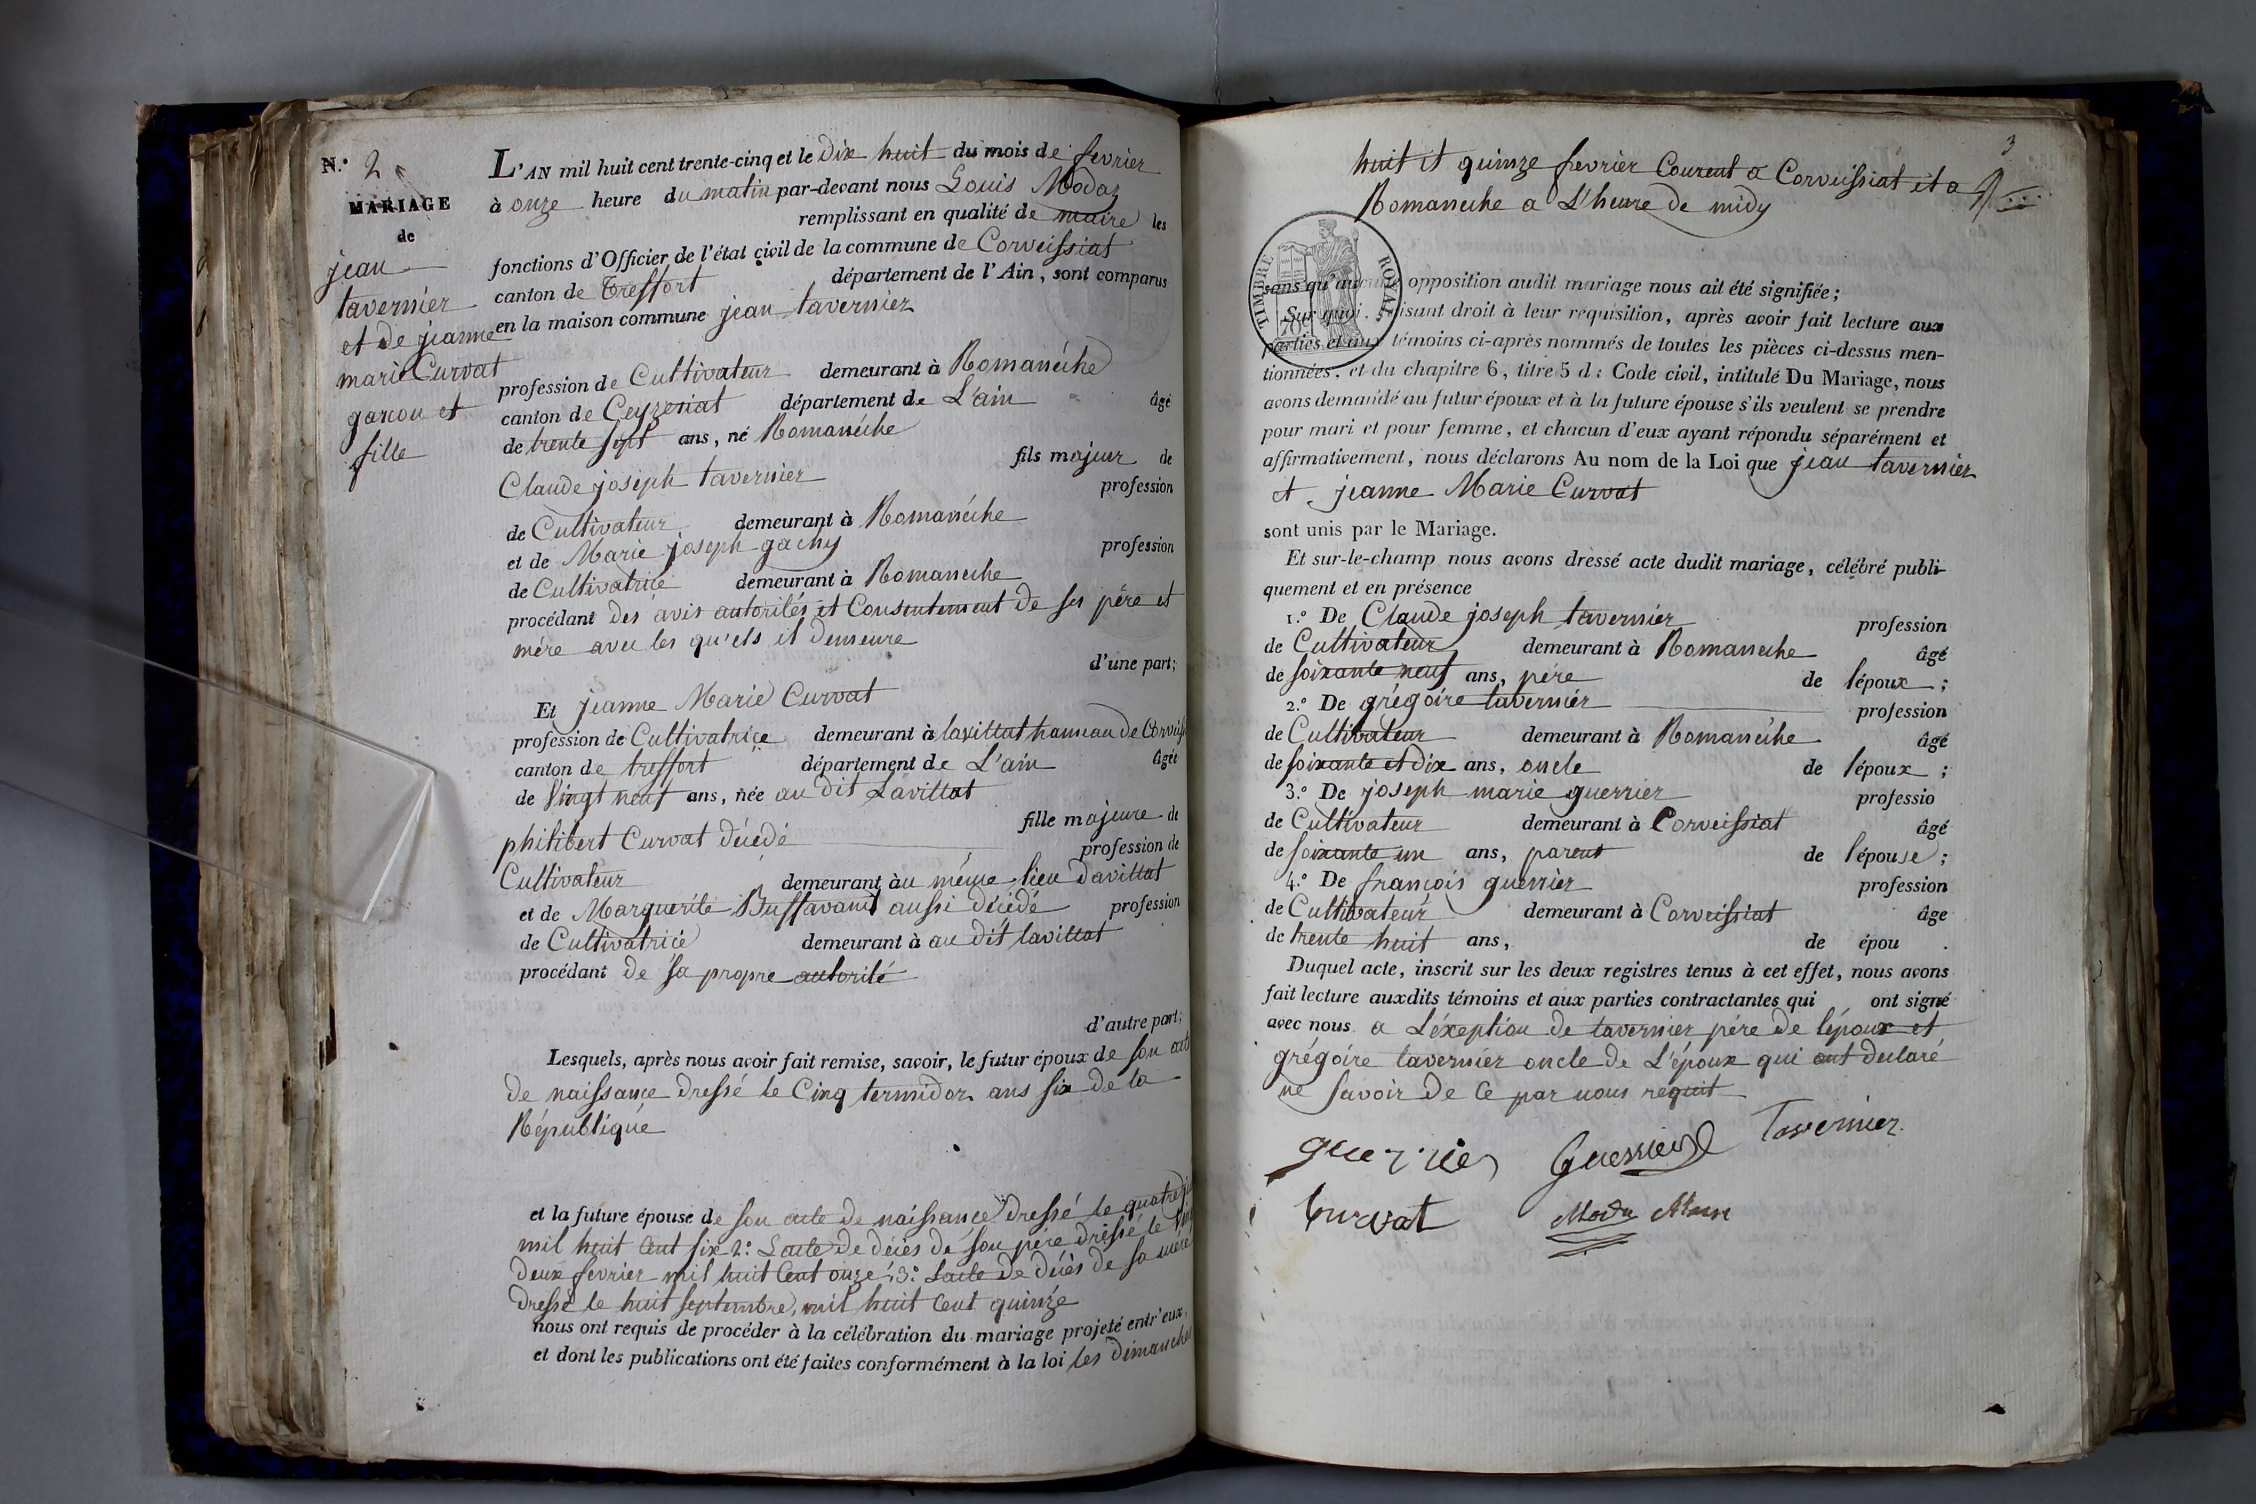 N.° 2
MARIAGE
de
jean
tavernier
et de jeanne
marie Curvat
garcon et
fille
L'AN mil huit cent trente-cinq et le dix huit du mois de fevrier
à onze heure du matin par-devant nous Louis Modaz
remplissant en qualité de maire les
fonctions d'Officier de l'état civil de la commune de Corveissiat
canton de Treffort département de l'Ain, sont comparus
en la maison commune jean tavernier
profession de Cultivateur demeurant à Romanéche
canton de Ceyzeriat département de L'ain âgé
de trente sept ans, né Romanéche
fils majeur de
Claude joseph tavernier profession
de Cultivateur demeurant à Romanéche
et de Marie joseph gachy profession
de Cultivatrice demeurant à Romaneche
procédant des avis autorités et Consentement de ses pére et
mére avec les qu'els il demeure
d'une part;
Et jeanne Marie Curvat
profession de Cultivatrice demeurant à lavillat hameau de
canton de treffort département de L'ain âgée
de vingt neuf ans, née au dit Lavillat
fille majeure de
philibert Curvat décédé profession de
Cultivateur demeurant au méme lieu Davillat
et de Marguerite Buffavand aussi décédé profession
de Cultivatrice demeurant à au dit lavillat
procédant de sa propre autorité
d'autre part;
Lesquels, après nous avoir fait remise, savoir, le futur époux de son acte
de naissance dressé le Cinq termidor ans six de la
République
et la future épouse de son acte de naissance dressé le quatre
mil huit Cent six 2.° Lacte de décés de son pére dressé le
deux fevrier mil huit Cent onze, 3.° Lacte de décés de sa mére
dressé le huit septembre, mil huit Cent quinze
nous ont requis de procéder à la célébration du mariage projeté entr'eux,
et dont les publications ont été faites conformément à la loi les dimanches
3
huit et quinze fevrier Courent a Corveissiat et a
Romaneche a L'heure de midy
TIMBRE ROYAL
sans qu'aucune opposition audit mariage nous ait été signifiée;
Sur quoi, faisant droit à leur requisition, après avoir fait lecture aux
parties et aux témoins ci-après nommés de toutes les pièces ci-dessus men-
tionnées, et du chapitre 6, titre 5 du Code civil, intitulé Du Mariage, nous
avons demandé au futur époux et à la future épouse s'ils veulent se prendre
pour mari et pour femme, et chacun d'eux ayant répondu séparément et
affirmativement, nous déclarons Au nom de la Loi que jean tavernier
et jeanne Marie Curvat
sont unis par le Mariage.
Et sur-le-champ nous avons dressé acte dudit mariage, célébré publi-
quement et en présence
1.° De Claude joseph tavernier profession
de Cultivateur demeurant à Romaneche âgé
de soixante neuf ans, pére de l'époux ;
2.° De grégoire tavernier profession
de Cultivateur demeurant à Romanéche âgé
de soixante et dix ans, oncle de l'époux ;
3.° De joseph marie guerrier professio
de Cultivateur demeurant à Corveissiat âgé
de soixante un ans, parent de l'épouse ;
4.° De françois guerrier profession
de Cultivateur demeurant à Corveissiat âge
de trente huit ans, de épou .
Duquel acte, inscrit sur les deux registres tenus à cet effet, nous avons
fait lecture auxdits témoins et aux parties contractantes qui ont signé
avec nous a L'éxeption de tavernier pére de l'époux et
grégoire tavernier oncle de L'époux qui ont declaré
ne savoir de Ce par nous requit
guerrier Guerrier Tavernier
Curvat Modaz Maire